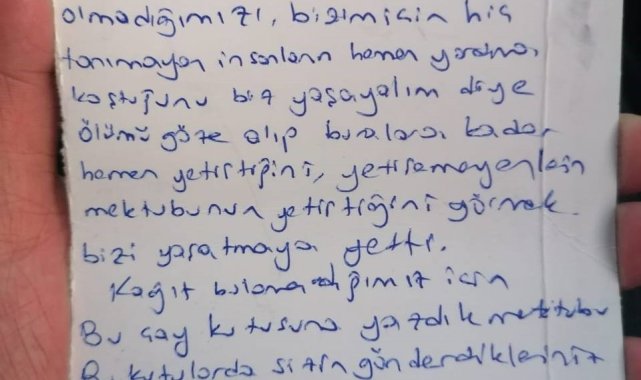 olmadığımızı, bizim için hiç
tanımayan insanların hemen yardıma
koştuğunu biz yaşayalım diye
ölümü göze alıp buralara kadar
hemen yetiştiğini, yetişemeyenlerin
mektubunun yetiştiğini görmek.
bizi yaşatmaya yetti.
Kağıt bulamadığımız için
Bu çay kutusuna yazdık mektubu
Bu kutularda sizin gönderdikleriniz